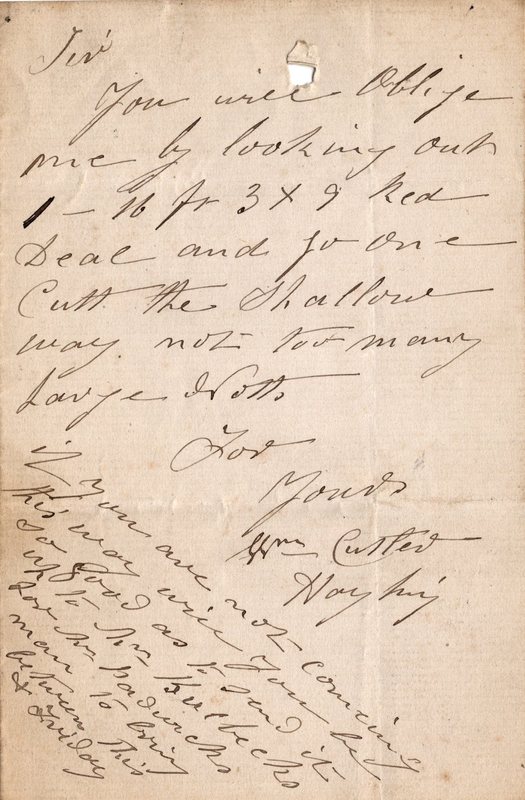 Sir
You will Oblige
me by looking out
1 - 16 ft 3 X 9 Red
Deal and go one
Cutt the Shallow
way not too many
Large Notts
For
Yours
Wm Cutler
if you are not coming
this way will you be
so good as to send it
up to Mr
for Mr
man to bring
between this
& Friday